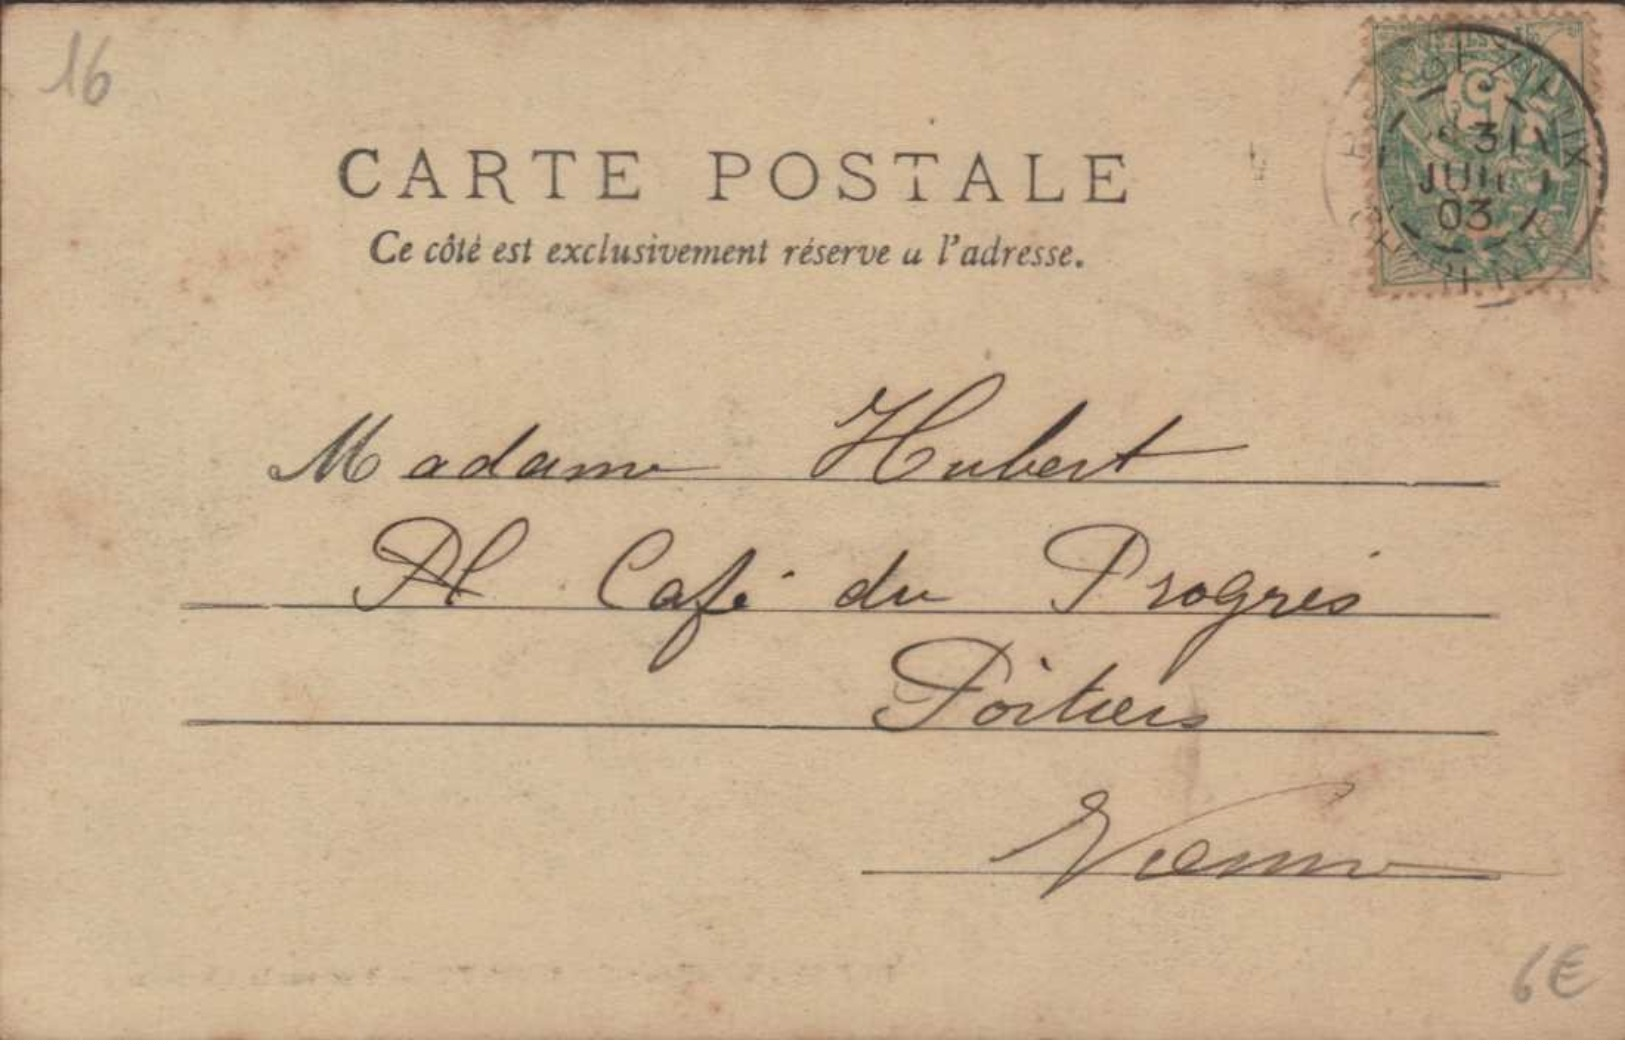 16
CARTE POSTALE
Ce côté est exclusivement réservé a l'adresse.
5
31
JUIL
03
Madame Hubert
Pl Café du Progrès
Poitiers
Vienne
6€